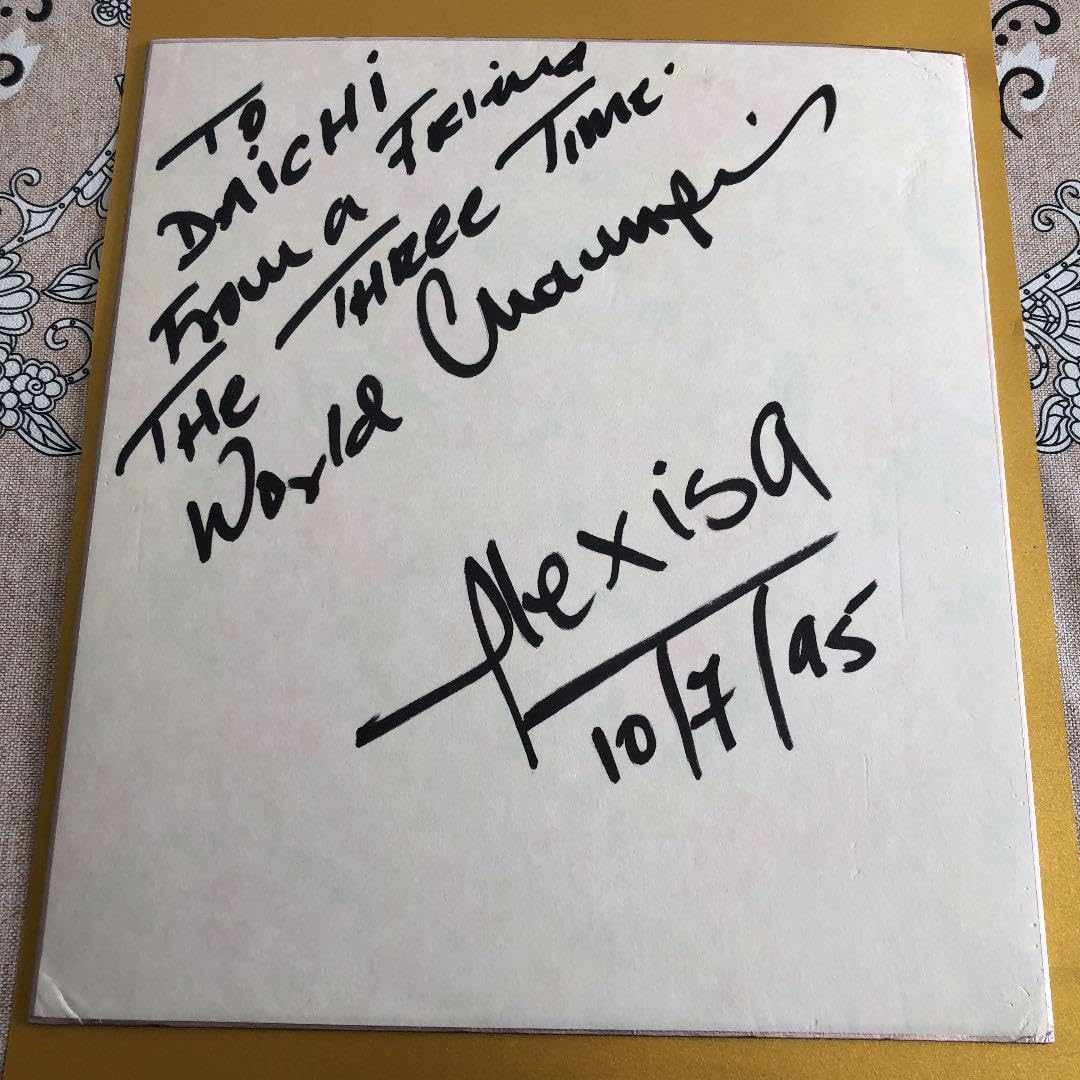 TO
DAICHI
From a FRIEND
THE THREE TIME
World Champion
AlexisA
10/7/95